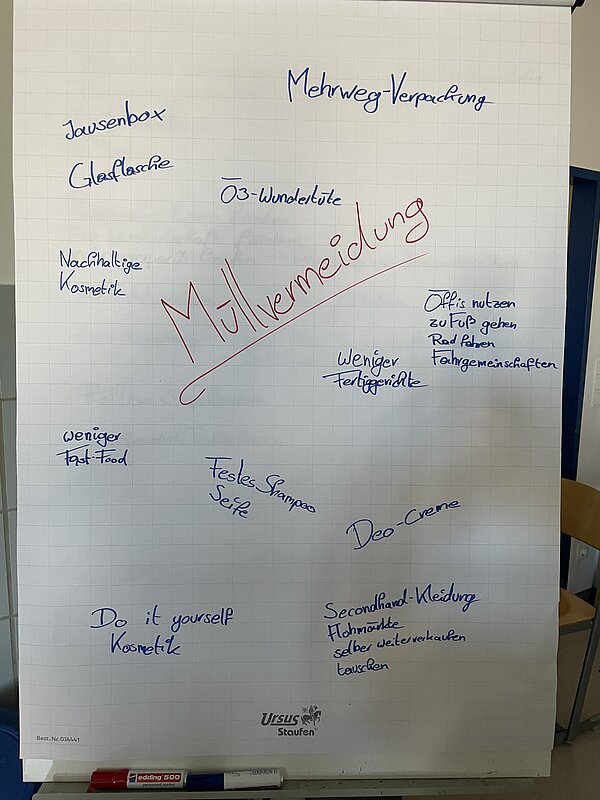 Mehrweg-Verpackung
Jausenbox
Glasflasche
Ö3-Wundertüte
Müllvermeidung
Nachhaltige
Kosmetik
Öffis nutzen
zu Fuß gehen
Rad fahren
Fahrgemeinschaften
weniger
Fertiggerichte
weniger
Fast-Food
Festes Shampoo
Seife
Deo-Creme
Do it yourself
Kosmetik
Secondhand-Kleidung
Flohmärkte
selber weiterverkaufen
tauschen
Ursus
Staufen
Best. Nr. 036441
edding 500
permanent marker